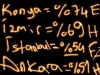 Konya = %74 E
İzmir = %69 H
İstanbul = %54
Ankara = %59